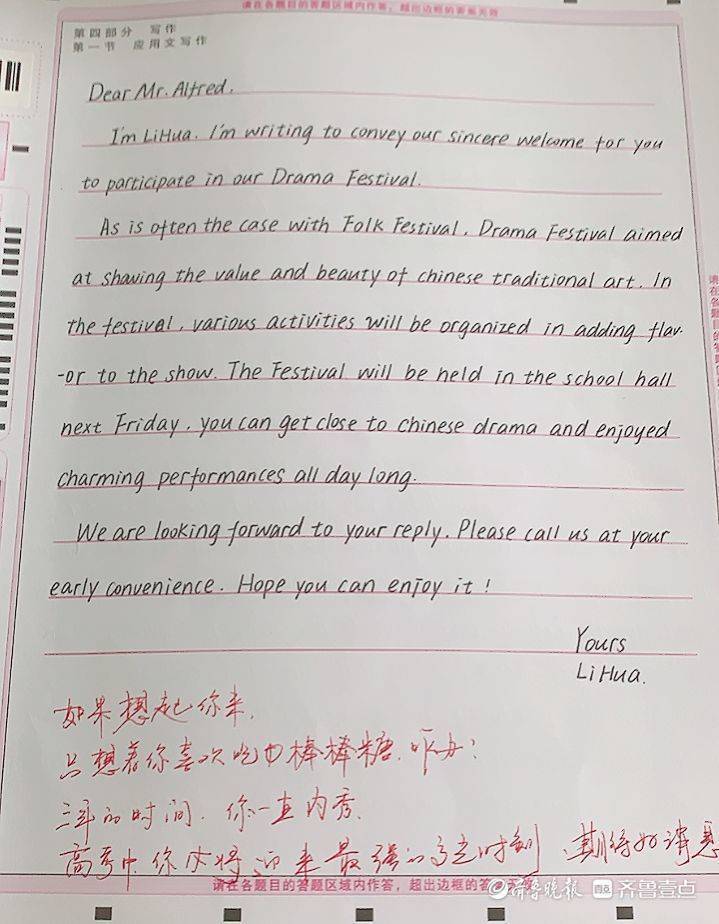 请在各题目的答题区域内作答，超出边框的答案无效
第四部分 写作
第一节 应用文写作
Dear Mr. Alfred,
I'm LiHua. I'm writing to convey our sincere welcome for you
to participate in our Drama Festival.
As is often the case with Folk Festival, Drama Festival aimed
at shaving the value and beauty of chinese traditional art. In
the festival, various activities will be organized in adding flav-
-or to the show. The Festival will be held in the school hall
next Friday, you can get close to chinese drama and enjoyed
charming performances all day long.
We are looking forward to your reply. Please call us at your
early convenience. Hope you can enjoy it!
Yours
LiHua.
如果想起你来,
只想着你喜欢吃的棒棒糖,咋办?
三年的时间,你一直内秀,
高考中你必将迎来最强的高光时刻,期待好消息
请在各题目的答题区域内作答，超出边框的答案无效
齐鲁晚报 齐鲁壹点
请在各题目的